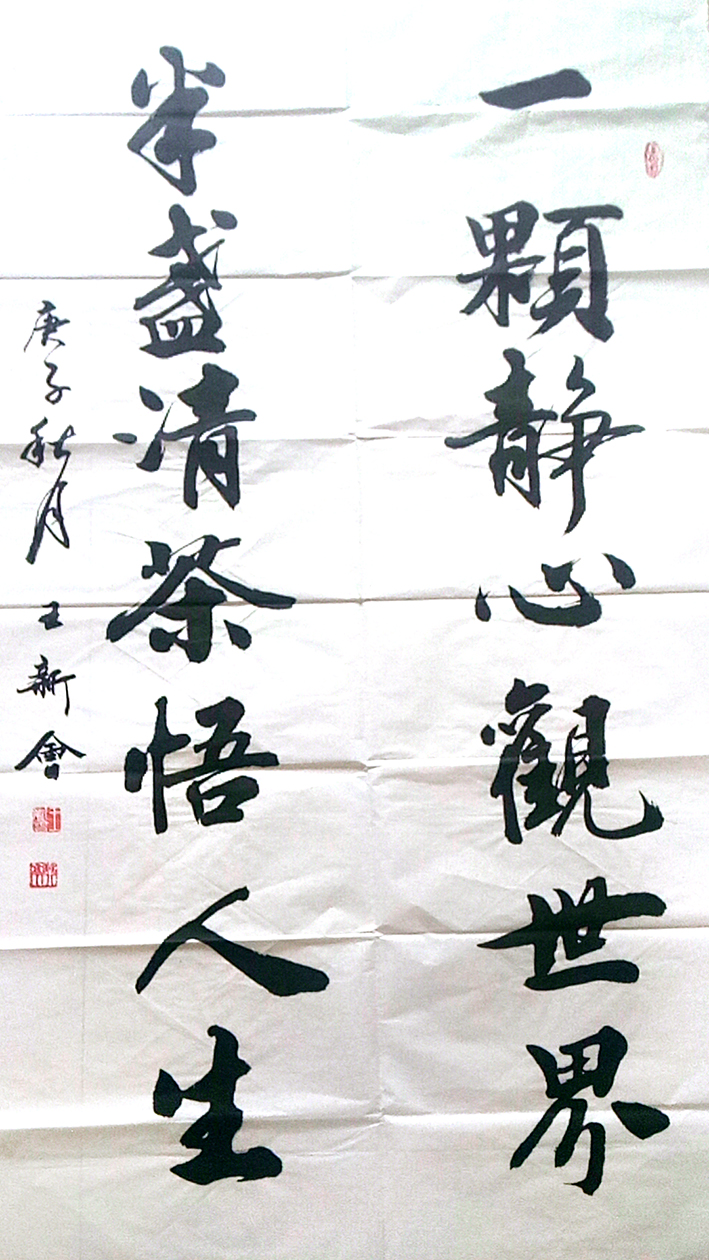 一顆静心觀世界
半盏清茶悟人生
庚子秋月 王新會